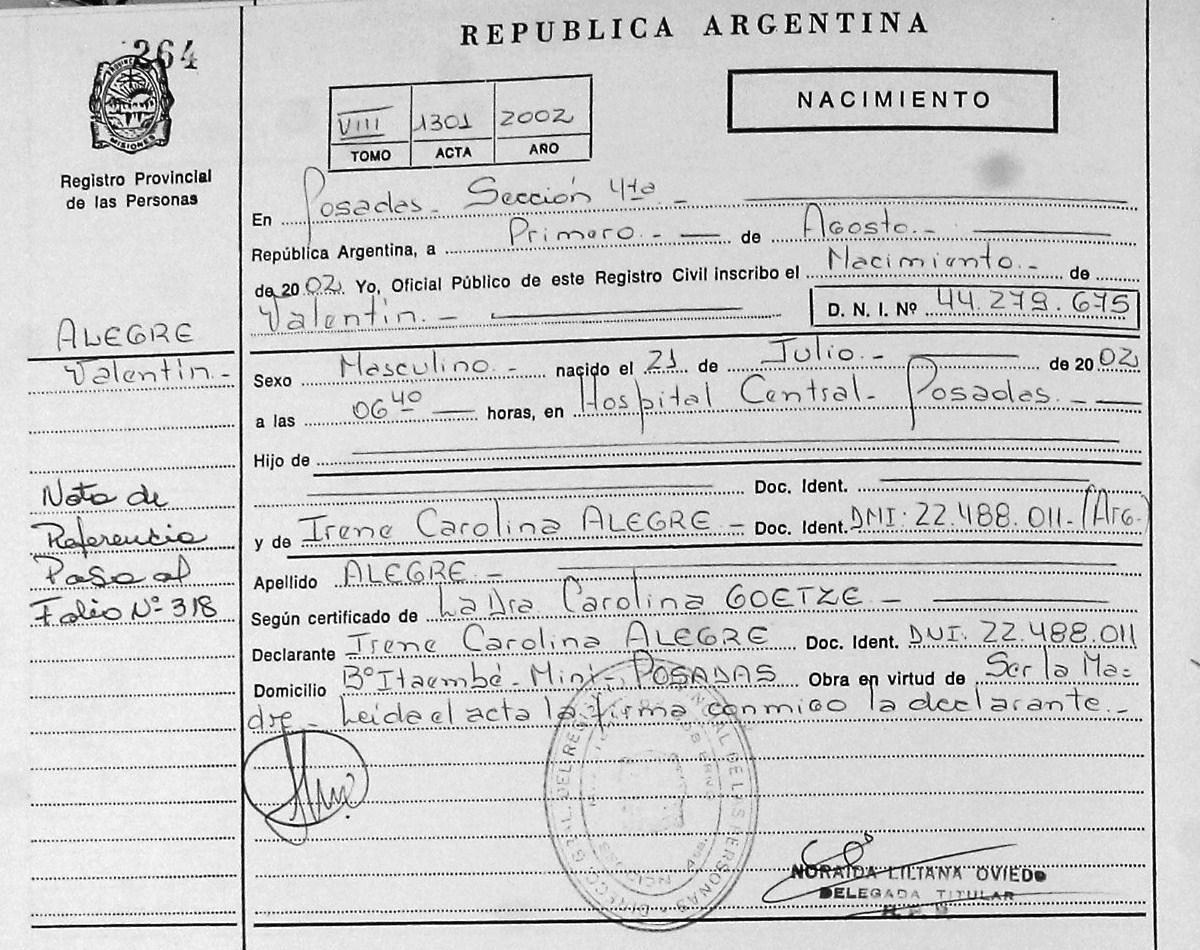 264
PROVINCIA
MISIONES
Registro Provincial
de las Personas
ALEGRE
Valentin.-
Nota de
Referencia
Pasa al
Folio Nº 318
REPUBLICA ARGENTINA
NACIMIENTO
VIII 1301 2002
TOMO ACTA AÑO
En Posadas. Sección 4ta.-
República Argentina, a Primero.- de Agosto.-
de 2002. Yo, Oficial Público de este Registro Civil inscribo el Nacimiento.- de
Valentin.- D. N. I. Nº 44.279.675
Sexo Masculino.- nacido el 21 de Julio.- de 2002
a las 06 40 horas, en Hospital Central- Posadas.-
Hijo de
Doc. Ident.
y de Irene Carolina ALEGRE.- Doc. Ident. DNI: 22.488.011-(Arg.)
Apellido ALEGRE.-
Según certificado de La Dra. Carolina GOETZE-
Declarante Irene Carolina ALEGRE Doc. Ident. DNI. 22.488.011
Domicilio Bº Itaembé-Miní-, POSADAS Obra en virtud de Ser la Ma-
dre- Leida el acta la firma conmigo la declarante.-
DIRECC. GRAL. DEL REGISTRO PROVINCIAL DE LAS PERSONAS
NORAIDA LILIANA OVIEDO
DELEGADA TITULAR